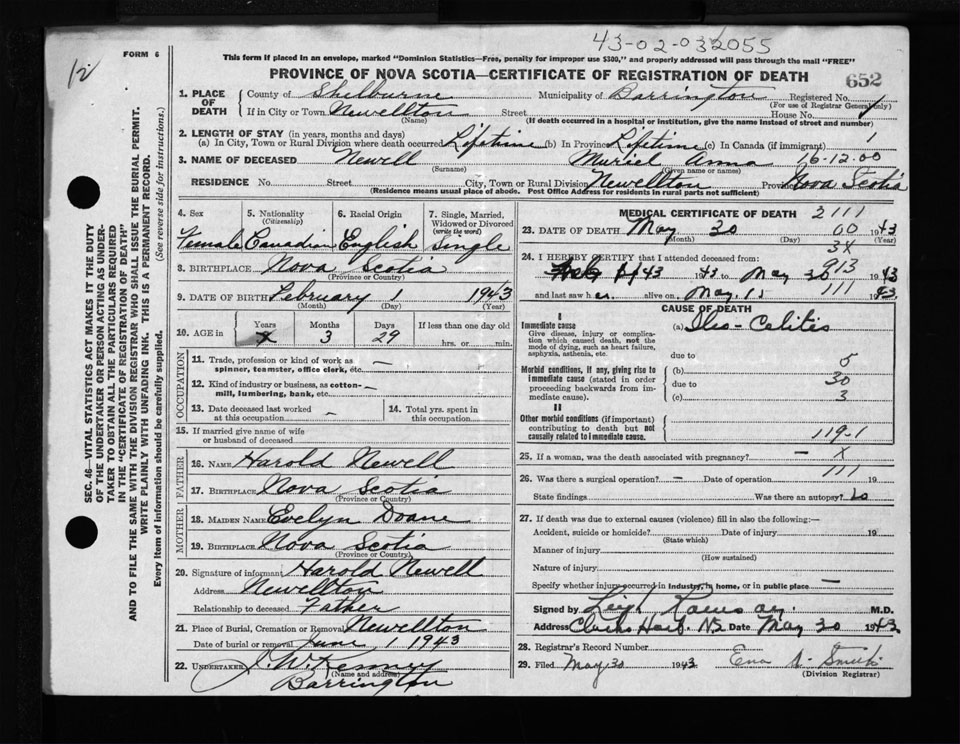 43-02-032055
12
FORM 6
This form if placed in an envelope, marked "Dominion Statistics—Free, penalty for improper use $300," and properly addressed will pass through the mail "FREE"
PROVINCE OF NOVA SCOTIA—CERTIFICATE OF REGISTRATION OF DEATH
652
SEC. 46—VITAL STATISTICS ACT MAKES IT THE DUTY
OF THE UNDERTAKER OR PERSON ACTING AS UNDER-
TAKER TO OBTAIN ALL THE PARTICULARS REQUIRED
IN THE "CERTIFICATE OF REGISTRATION OF DEATH"
AND TO FILE THE SAME WITH THE DIVISION REGISTRAR WHO SHALL ISSUE THE BURIAL PERMIT.
WRITE PLAINLY WITH UNFADING INK. THIS IS A PERMANENT RECORD.
Every item of information should be carefully supplied. (See reverse side for instructions.)
1. PLACE OF DEATH County of Shelburne Municipality of Barrington Registered No.
(For use of Registrar General only)
If in City or Town Newellton Street House No.
(Name) (If death occurred in a hospital or institution, give the name instead of street and number)
2. LENGTH OF STAY (in years, months and days)
(a) In City, Town or Rural Division where death occurred Lifetime (b) In Province Lifetime (c) In Canada (if immigrant)
3. NAME OF DECEASED Newell Muriel Anna 16-12-00
(Surname) (Given name or names)
RESIDENCE No. Street City, Town or Rural Division Newellton Province Nova Scotia
(Residence means usual place of abode. Post Office Address for residents in rural parts not sufficient)
4. Sex Female
5. Nationality (Citizenship) Canadian
6. Racial Origin English
7. Single, Married, Widowed or Divorced (write the word) Single
8. BIRTHPLACE Nova Scotia
(Province or Country)
9. DATE OF BIRTH February 1 1943
(Month) (Day) (Year)
10. AGE in Years Months Days If less than one day old
3 29 hrs. or min.
OCCUPATION
11. Trade, profession or kind of work as spinner, teamster, office clerk, etc. —
12. Kind of industry or business, as cotton-mill, lumbering, bank, etc. —
13. Date deceased last worked at this occupation —
14. Total yrs. spent in this occupation
15. If married give name of wife or husband of deceased
FATHER
16. NAME Harold Newell
17. BIRTHPLACE Nova Scotia
(Province or Country)
MOTHER
18. MAIDEN NAME Evelyn Doane
19. BIRTHPLACE Nova Scotia
(Province or Country)
20. Signature of informant Harold Newell
Address Newellton
Relationship to deceased Father
21. Place of Burial, Cremation or Removal Newellton
Date of burial or removal June 1 1943
22. UNDERTAKER J. W. Kenney
(Name and address)
Barrington
MEDICAL CERTIFICATE OF DEATH 2111
23. DATE OF DEATH May 30 00 1943
(Month) (Day) (Year)
3X
24. I HEREBY CERTIFY that I attended deceased from: 913
43 to May 30 1943
111
and last saw her alive on May 1943
CAUSE OF DEATH
I
Immediate cause (a) Ileo-Colitis
Give disease, injury or complication which caused death, not the mode of dying, such as heart failure, asphyxia, asthenia, etc.
due to 5
Morbid conditions, if any, giving rise to immediate cause (stated in order proceeding backwards from immediate cause).
(b) 30
due to
(c) 3
II
Other morbid conditions (if important) contributing to death but not causally related to immediate cause. 119-1
25. If a woman, was the death associated with pregnancy? — X
111
26. Was there a surgical operation? — Date of operation 19
State findings Was there an autopsy? No
27. If death was due to external causes (violence) fill in also the following:—
Accident, suicide or homicide? Date of injury 19
(State which)
Manner of injury
(How sustained)
Nature of injury
Specify whether injury occurred in industry, in home, or in public place —
Signed by Leigh M.D.
Address Clarks Harb. NS Date May 30 1943
28. Registrar's Record Number
29. Filed May 30 1943 Ena A. Smith
(Division Registrar)